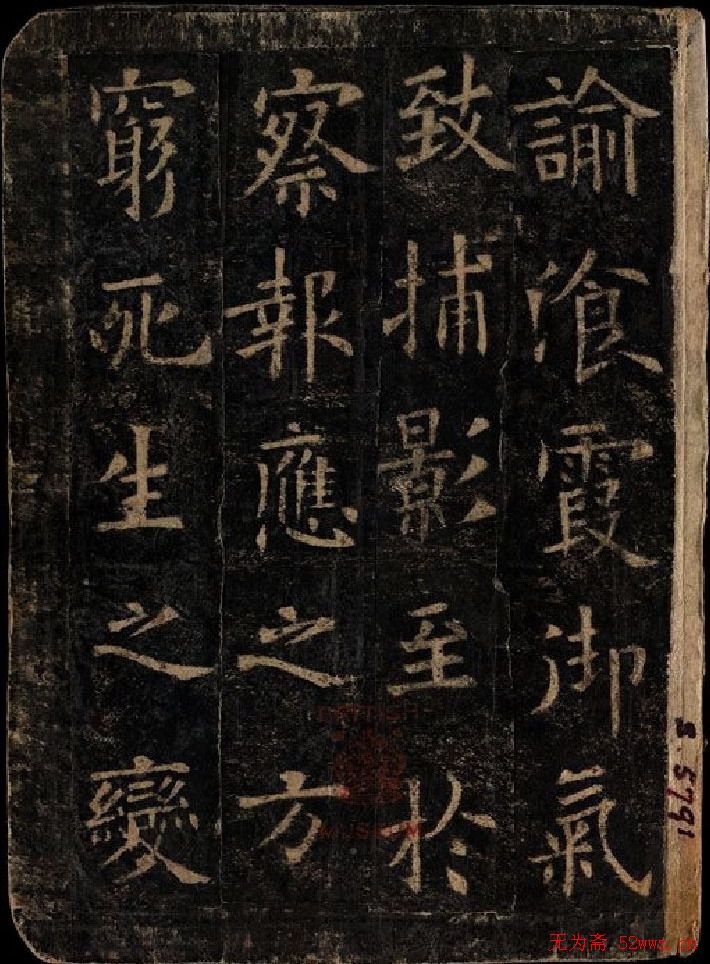 諭飡霞御氣
致捕影至於
察報應之方
窮死生之變
S. 5791
MUSEUM
无为斋 52wwz.cn